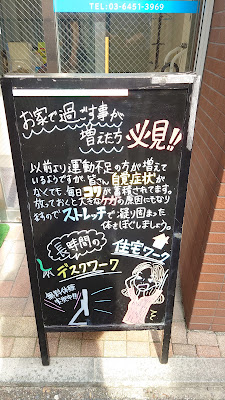 TEL:03-6451-3969
お家で過ごす事が
増えた方 必見!!
以前より運動不足の方が増えて
いるようですが、皆さん自覚症状が
なくても、毎日コリが蓄積されてます。
放っておくと大きなケガの原因にもなり
ますのでストレッチで凝り固まった
体をほぐしましょう。
長時間の
デスクワーク
住宅ワーク
無料体験